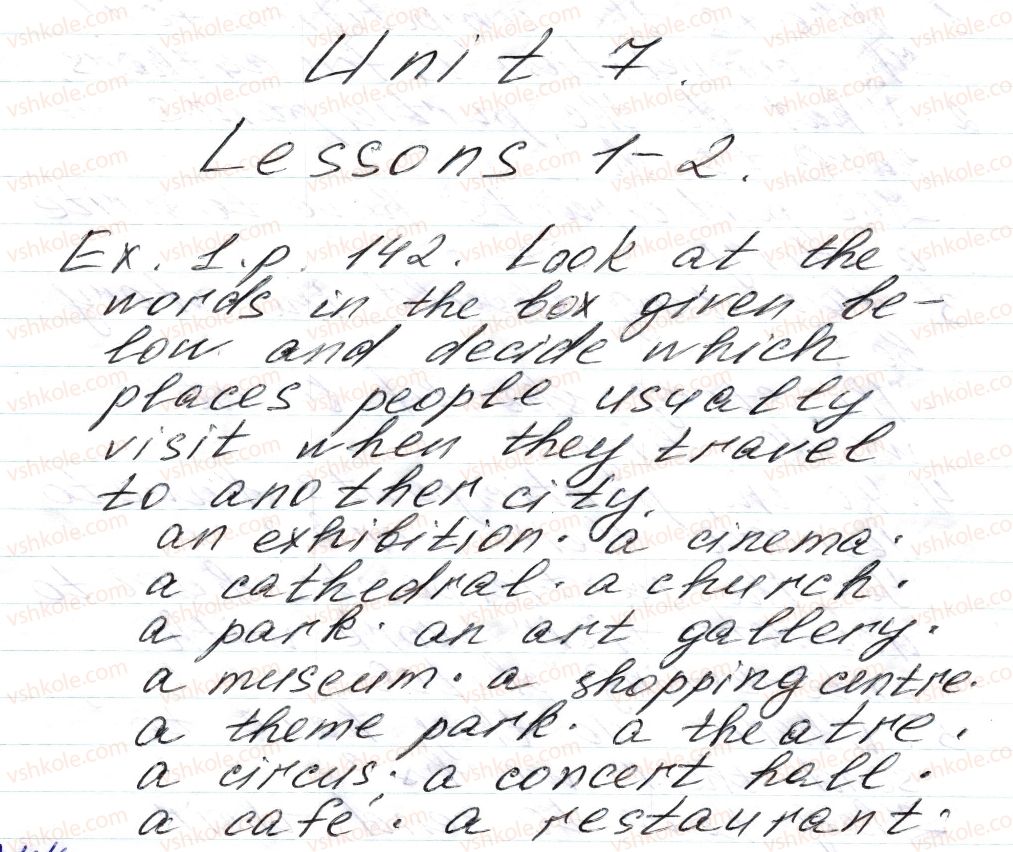 Unit 7.
Lessons 1-2.
Ex. 1. p. 142. Look at the
words in the box given be-
low and decide which
places people usually
visit when they travel
to another city.
an exhibition · a cinema ·
a cathedral · a church ·
a park · an art gallery ·
a museum · a shopping centre ·
a theme park · a theatre ·
a circus · a concert hall ·
a café · a restaurant ·
vshkole.com